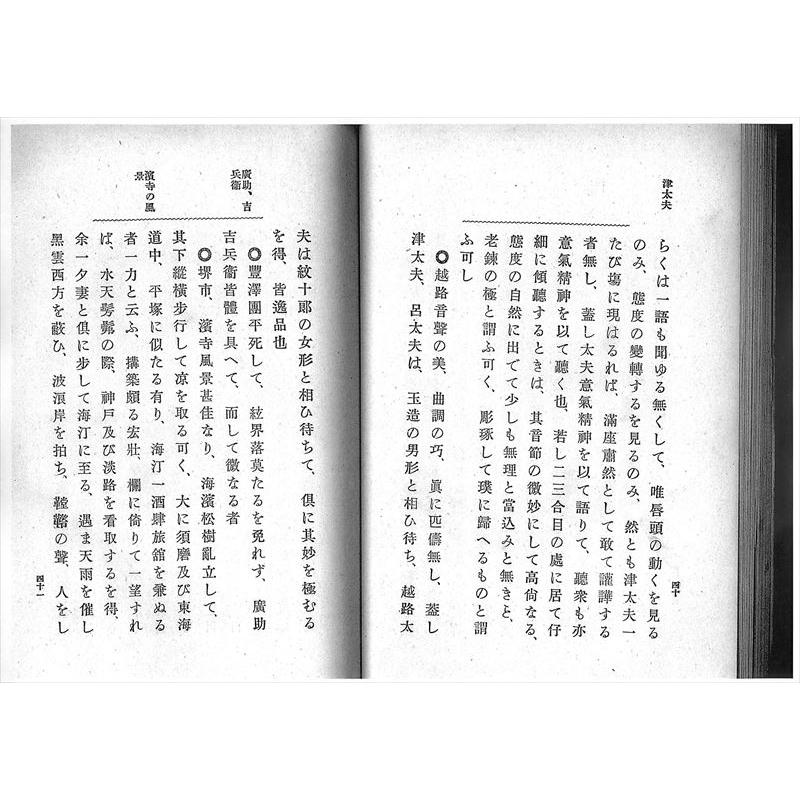 津太夫
らくは一語も聞ゆる無くして、唯唇頭の動くを見る
のみ、態度の變轉するを見るのみ、然とも津太夫一
たび塲に現はるれば、滿座肅然として敢て讙譁する
者無し、蓋し太夫意氣精神を以て語りて、聽衆も亦
意氣精神を以て聽く也、若し二三合目の處に居て仔
細に傾聽するときは、其音節の微妙にして高尙なる、
態度の自然に出でて少しも無理と當込みと無きと、
老鍊の極と謂ふ可く、彫琢して璞に歸へるものと謂
ふ可し
◎越路音聲の美、曲調の巧、眞に匹儔無し、蓋し
津太夫、呂太夫は、玉造の男形と相ひ待ち、越路太
四十
廣助、吉
兵衞
濱寺の風
景
夫は紋十郞の女形と相ひ待ちて、俱に其妙を極むる
を得、皆逸品也
◎豐澤團平死して、絃界落莫たるを免れず、廣助
吉兵衞皆體を具へて、而して微なる者
◎堺市、濱寺風景甚佳なり、海濱松樹亂立して、
其下縱橫步行して凉を取る可く、大に須磨及び東海
道中、平塚に似たる有り、海汀一酒肆旅舘を兼ぬる
者一力と云ふ、搆築頗る宏壯、欄に倚りて一望すれ
ば、水天髣髴の際、神戶及び淡路を看取するを得、
余一夕妻と俱に步して海汀に至る、遇ま天雨を催し
黑雲西方を蔽ひ、波浪岸を拍ち、鞺鞳の聲、人をし
四十一